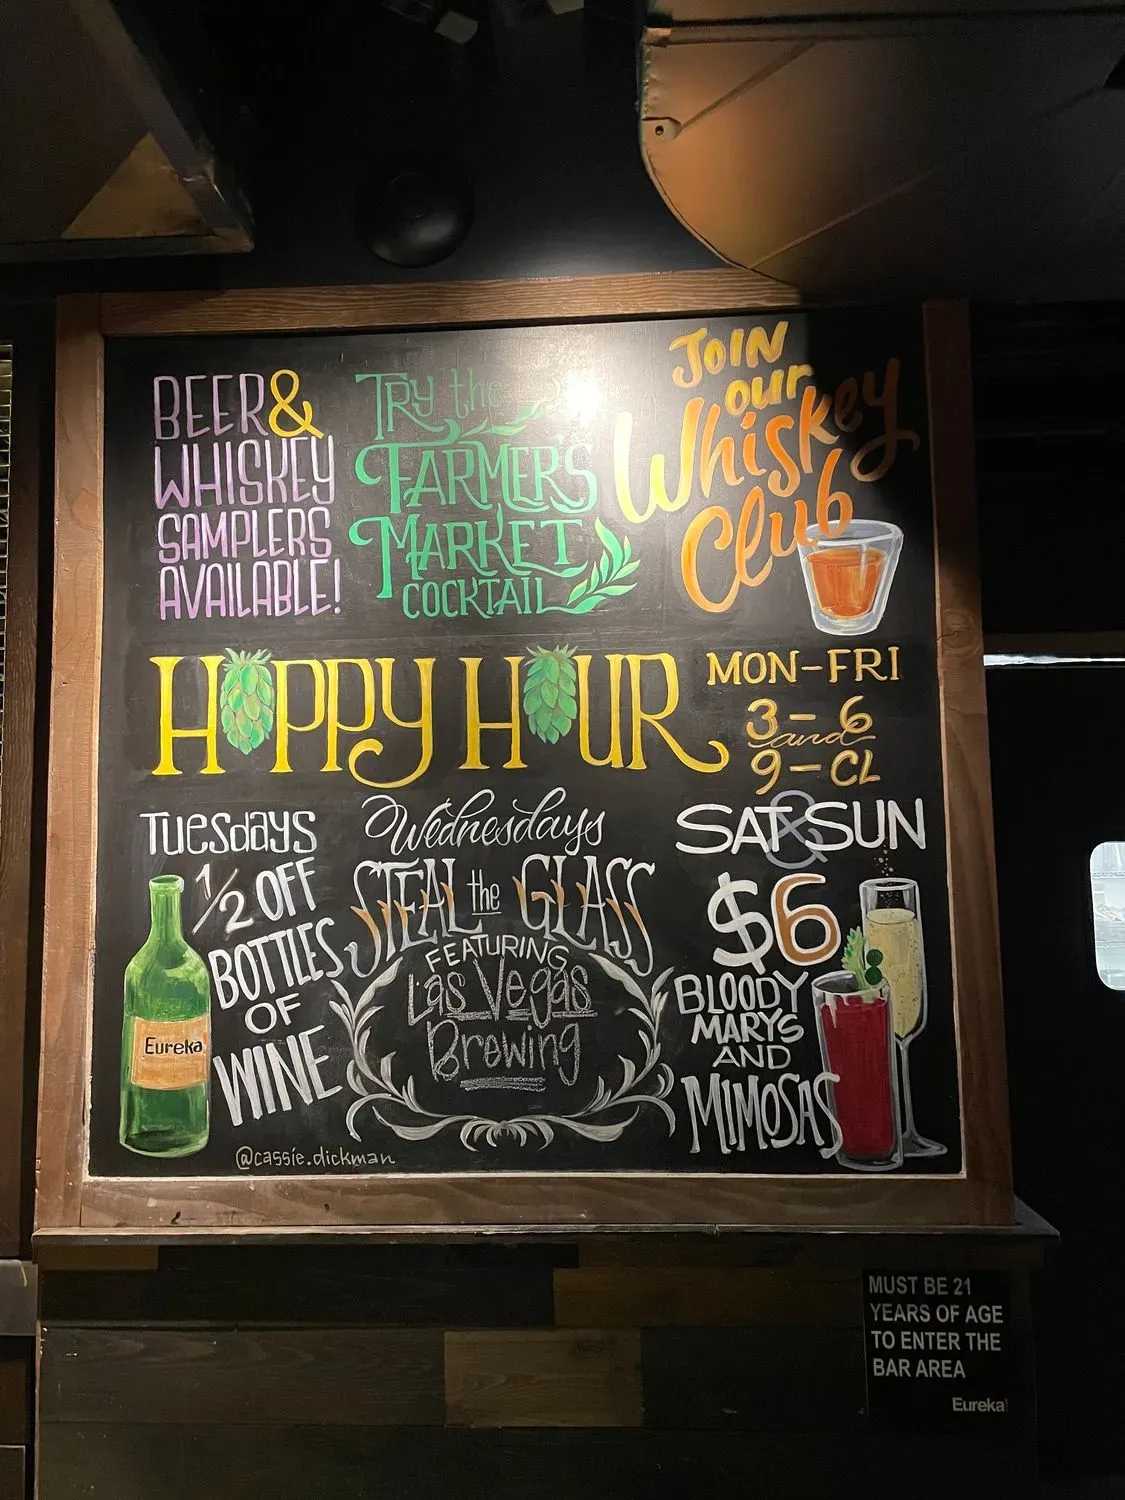 BEER &
WHISKEY
SAMPLERS
AVAILABLE!
TRY the
FARMER'S
MARKET
COCKTAIL
JOIN
our
Whiskey
Club
HAPPY HOUR
MON-FRI
3-6
and
9-CL
Tuesdays
1/2 OFF
BOTTLES
OF
WINE
Eureka
@cassie.dickman
Wednesdays
STEAL the GLASS
FEATURING
Las Vegas
Brewing
SAT & SUN
$6
BLOODY
MARYS
AND
MIMOSAS
MUST BE 21
YEARS OF AGE
TO ENTER THE
BAR AREA
Eureka!